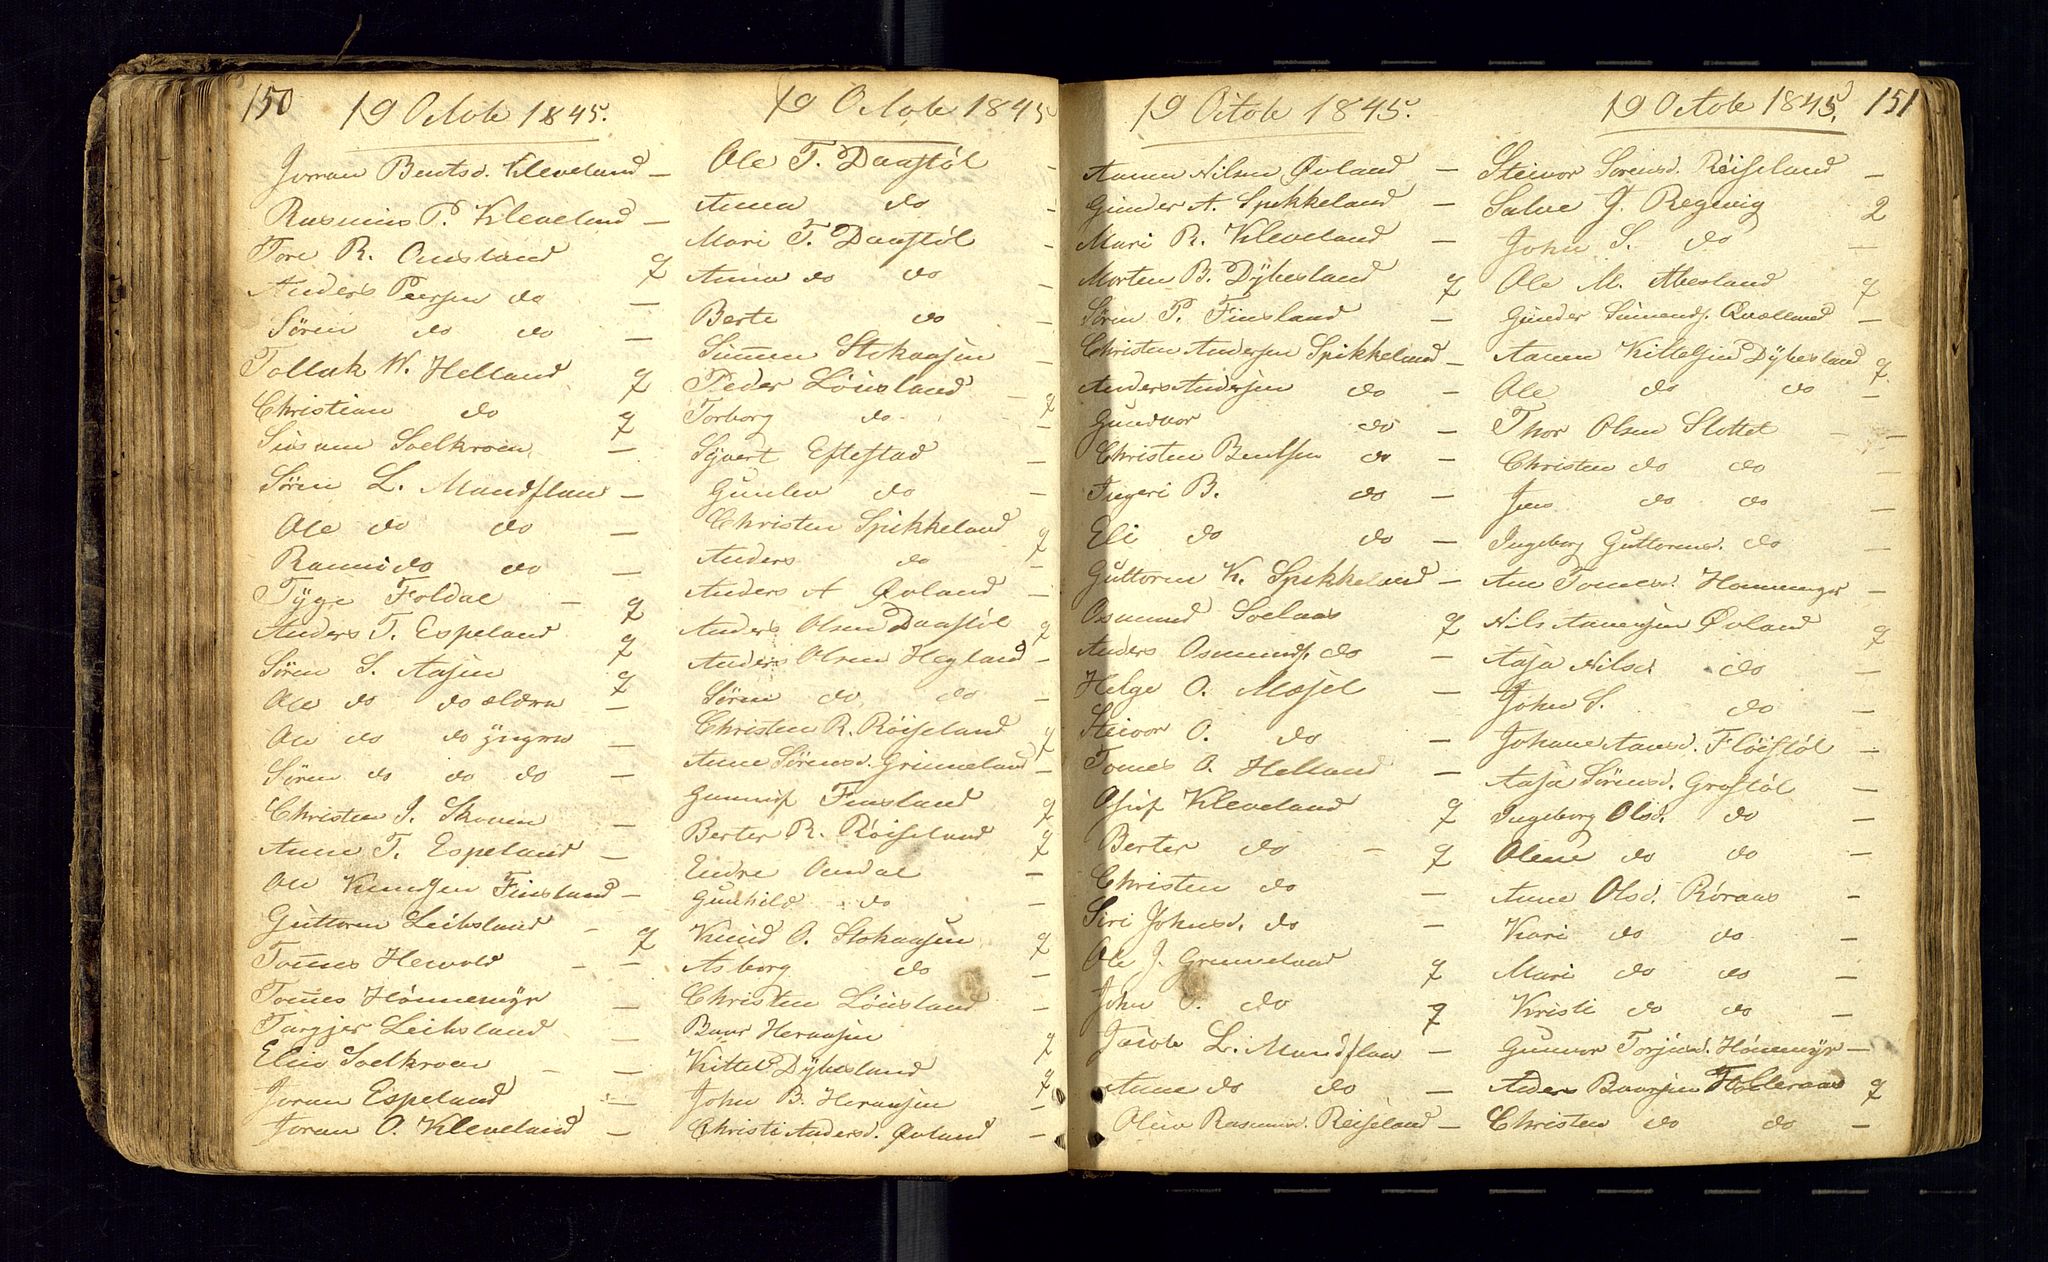 150
19 Octobr 1845.
Jorran Bentsd. Kleveland —
Rasmus P. Kleveland —
Tore R. Omsland q
Anders Peersen do —
Søren do do —
Tollak W. Helland q
Christian do q
Soelkroen —
Søren L. Mandflaa —
Ole do do —
Ranni do do —
Tÿge Foldal — q
Anders T. Espeland q
Søren S. Aasen q
Ole do do ældre —
Ole do do ÿngre —
Søren do do do —
Christen J. Skoven —
Anne T. Espeland —
Ole Knudsen Finsland —
Guttorm Leibsland — q
Tomes Hewold — —
Tomes Hønnemÿr —
Targjer Leibsland —
Elen Soelkroen — —
Joran Espeland —
Joran O. Kleveland —
19 Octobr 1845
Ole T. Daastøl —
Anna do —
Mari T. Daastøl —
Anna do do —
Berte do —
Simen Stokaasen —
Peder Løusland — q
Torborg do —
Sÿvert Eftestad —
Gunlov do —
Christen Spikkeland q
Anders do —
Anders A Øvland —
Anders Olsen Daastøl q
Anders Olsen Hegland —
Søren do do —
Christen R. Røiseland q
Anne Sørensd. Grimeland —
Gunnuf Finsland q
Berter R. Røiseland q
Endre Omdal —
Gunhild do —
Knud O. Stokaasen q
Asborg do —
Christen Løusland —
Baar Heraasen q
Kittel Dÿbesland q
John B. Heraasen —
Christi Andersd. Øvland —
19 Octobr 1845.
Aanen Nilsen Øvland —
Gunder A. Spikkeland —
Mari R. Kleveland —
Morten B. Dÿbesland q
Søren P. Finsland —
Christen Andersen Spikkeland —
Anders Andersen do —
Gundvor do —
Christen Bentsen do —
Ingeri B. do —
Eli do do —
Guttorm K. Spikkeland —
Osmund Soelaas q
Anders Osmunds. do —
Helge O. Mæsel —
Steivor O. do —
Tomes O. Helland —
Osuf Kleveland q
Berter do — q
Christen do —
Siri Johnsd. do —
Ole J. Grimeland q
John O. do q
Jacob L. Mandflaa —
Anne do do —
Olene Rasmusd. Reiseland —
19 Octobr 1845.
151
Steivor Sorensd. Røiseland —
Salve J. Regevig 2
John S. do —
Ole M. Abesland q
Gunder Simends. Qvælland —
Aanen Kittelsen Dÿbesland q
Ole do do —
Thor Olsen Slottet — —
Christen do do —
Jens do do —
Ingeborg Guttormsd. do —
Ane Tomesd. Hønnemyr —
Nils Aanensen Øvland q
Aasa Nilsd do —
John S. do —
Johane Aanesd. Fløistøl —
Aasa Sørensd. Grostøl —
Ingeborg Olsd. do —
Olene do do —
Anne Olsd. Røraas —
Kari do do —
Mari do do —
Kristi do do —
Gunvor Torjusd. Hønnemÿr —
Anders Baarsen Holleraas q
Christen do do —